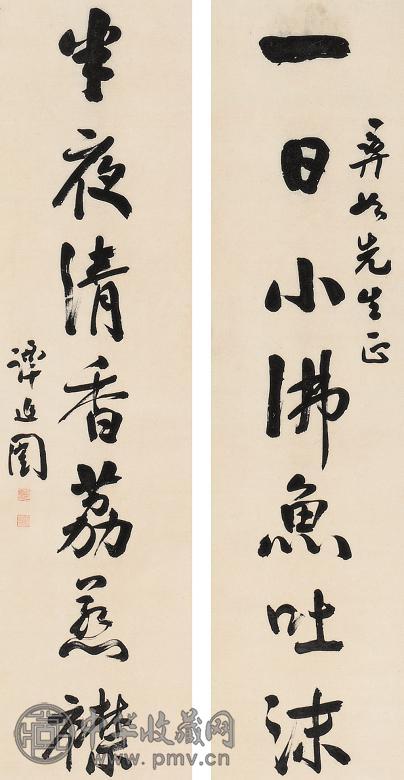 彝 先生正
一日小沸魚吐沫
半夜清香荔惹襟
譚延闓
中华收藏网
www.pmv.cn